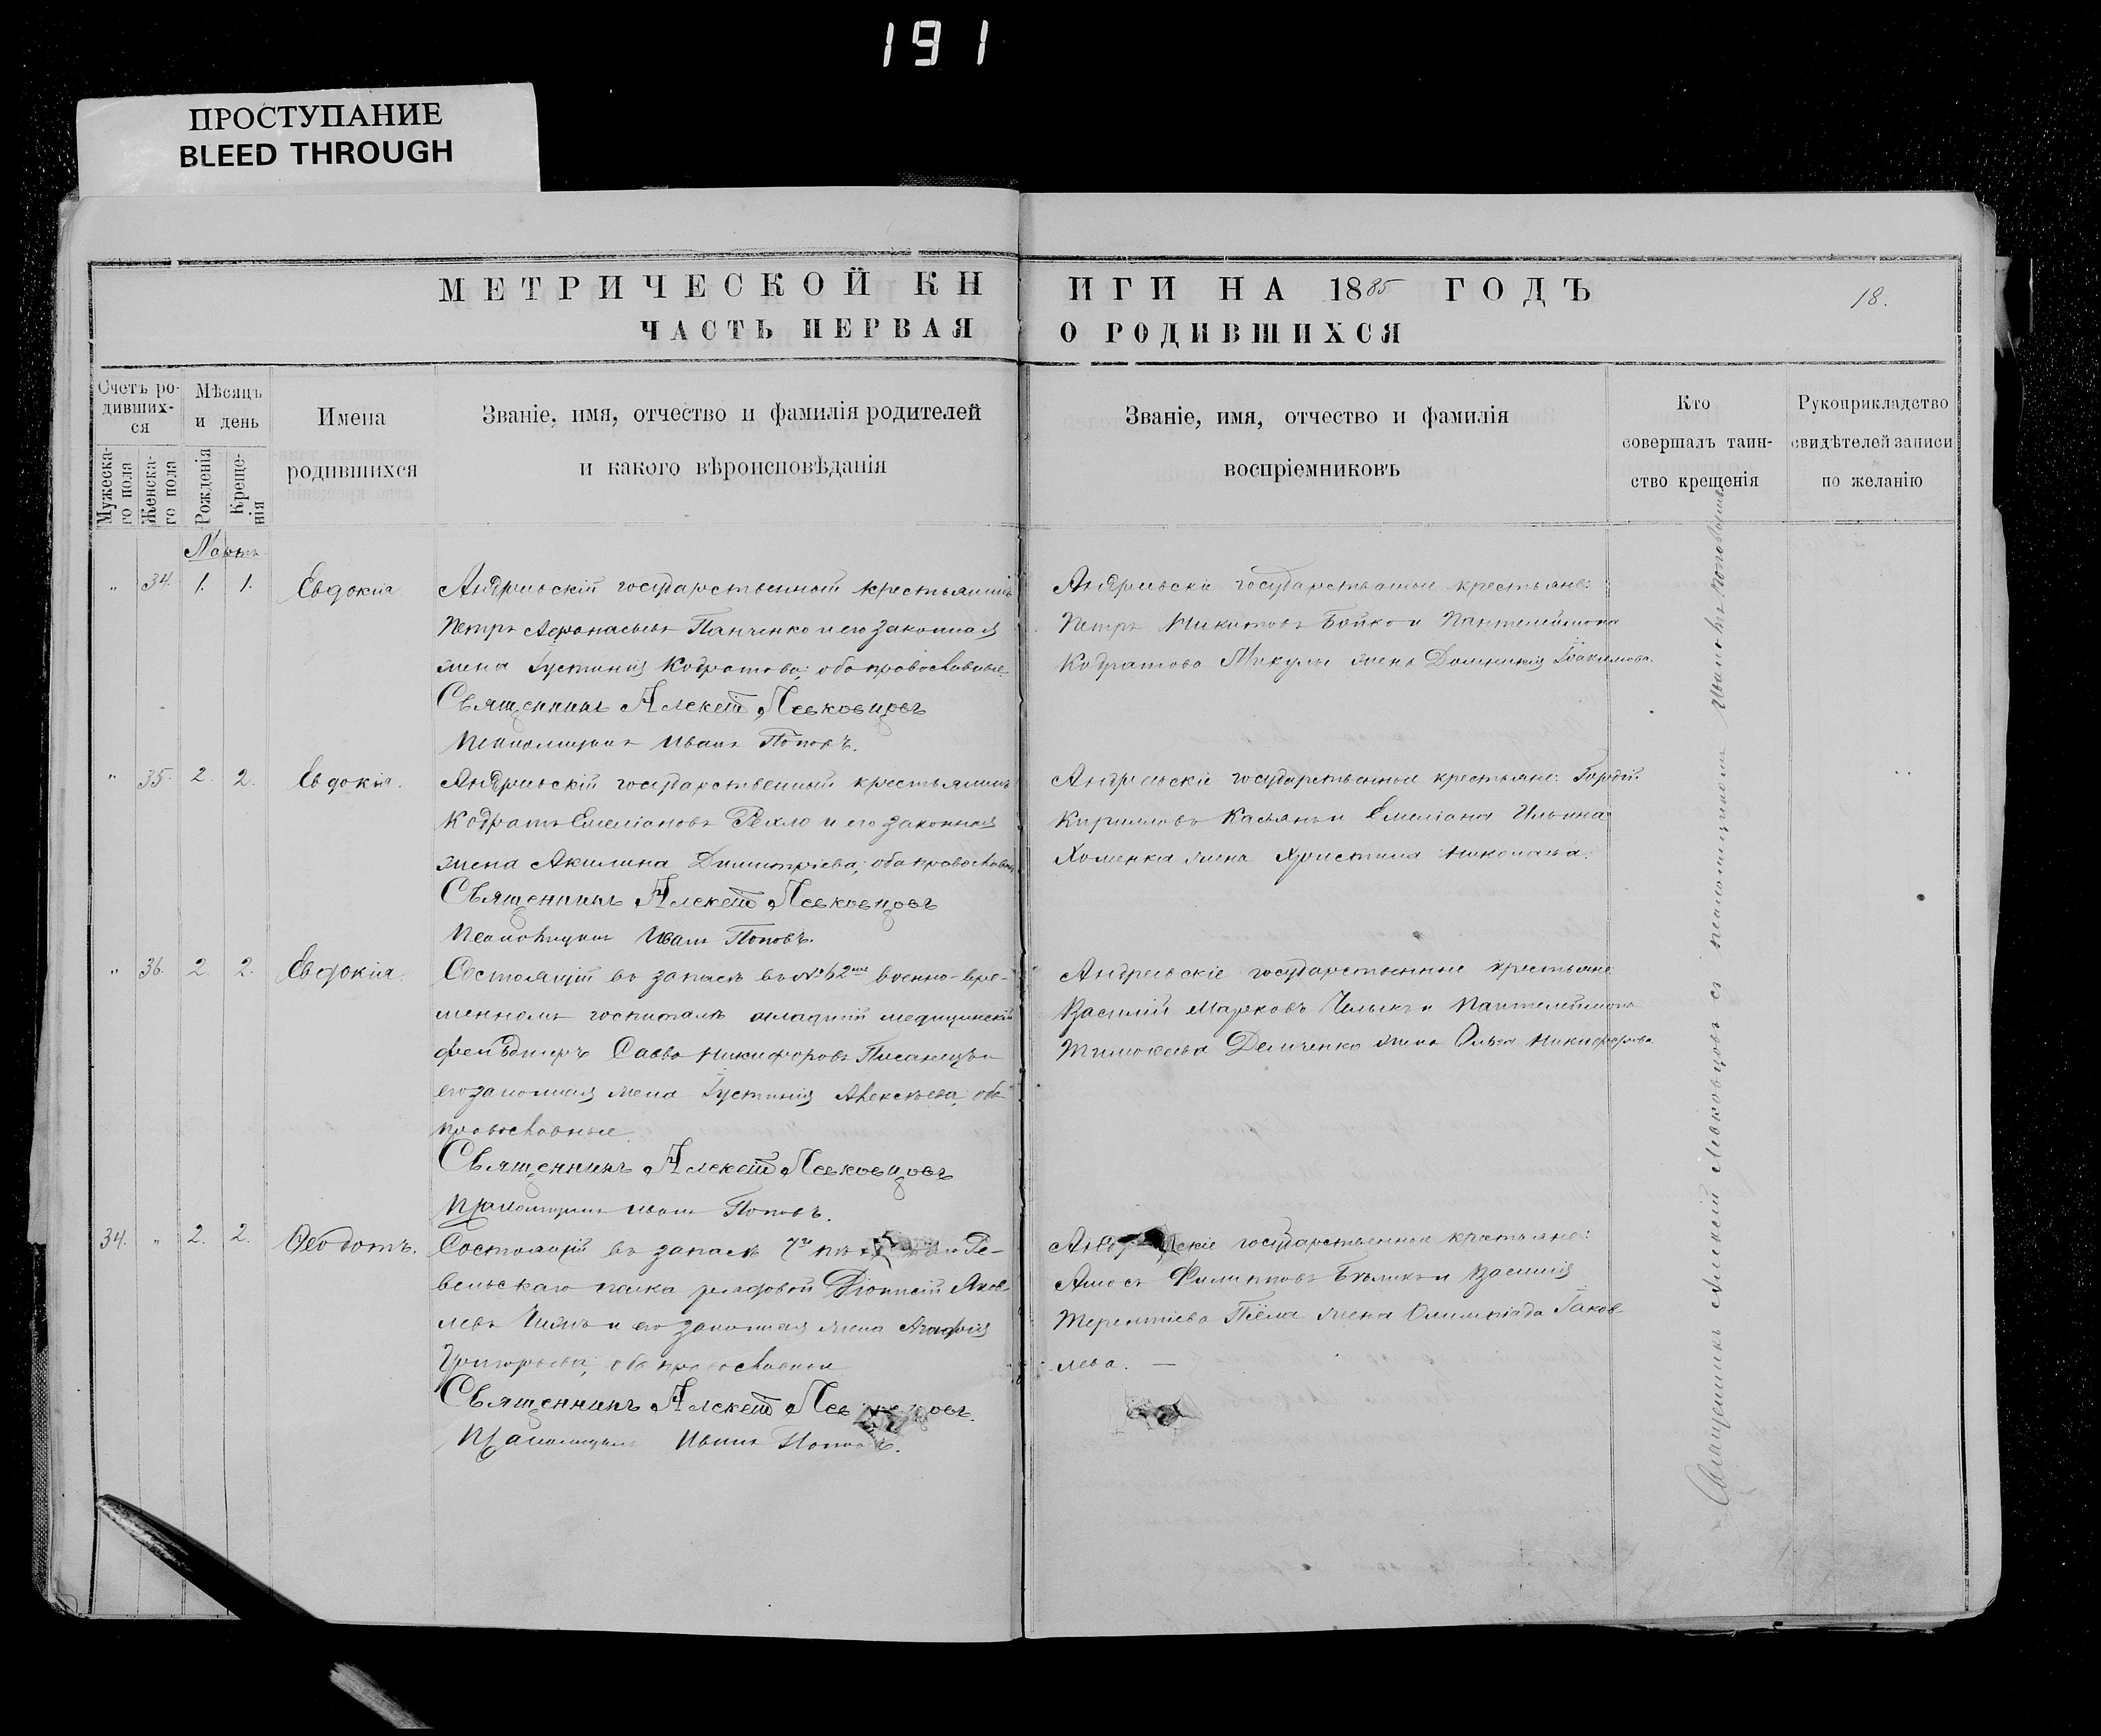 191
ПРОСТУПАНИЕ
BLEED THROUGH
МЕТРИЧЕСКОЙ КНИГИ НА 1885 ГОДЪ
18.
ЧАСТЬ ПЕРВАЯ О РОДИВШИХСЯ
Счетъ ро-
дивших-
ся
Мужеска-
го пола
Женска-
го пола
Мѣсяцъ
и день
Рожденія
Креще-
нія
Имена
родившихся
Званіе, имя, отчество и фамилія родителей
и какого вѣроисповѣданія
Званіе, имя, отчество и фамилія
воспріемниковъ
Кто
совершалъ таин-
ство крещенія
Рукоприкладство
свидѣтелей записи
по желанію
Мартъ
" 34. 1. 1. Евдокія
Андреевскій государственный крестьянинъ
Петръ Аѳонасьевъ Панченко и его законная
жена Іустинія Кодратова; оба православные.
Священникъ Алексій Левковцовъ
Псаломщикъ Иванъ Поповъ.
Андреевскіе государственные крестьяне:
Петръ Никитовъ Бойко и Пантелеймона
Кодратова Микулы жена Домникія Іоакимова.
" 35. 2. 2. Евдокія.
Андреевскій государственный крестьянинъ
Кодратъ Емеліановъ Рехло и его законная
жена Акилина Димитріева; оба православные
Священникъ Алексій Левковцовъ
Псаломщикъ Иванъ Поповъ.
Андреевскіе государственные крестьяне: Гордій
Кирилловъ Касьянъ и Емеліана Ильина
Хоменка жена Христина Николаева.
" 36. 2. 2. Евдокія.
Состоящій въ запасѣ въ № 62 военно-вре-
менномъ госпиталѣ младшій медицинскій
фельдшеръ Савва Никифоровъ Писанецъ и
его законная жена Іустинія Алексѣева; оба
православные.
Священникъ Алексій Левковцовъ
Псаломщикъ Иванъ Поповъ.
Андреевскіе государственные крестьяне
Василій Марковъ и Пантелеймона
Тимоѳеева Демченко жена Ольга Никифорова.
34. " 2. 2. Ѳеодотъ.
Состоящій въ запасѣ 7го Ре-
вельскаго полка рядовой Діонисій Яков-
левъ и его законная жена Агафія
Григорьева; оба православные
Священникъ Алексій Левковцовъ.
Псаломщикъ Иванъ Поповъ.
Андреевскіе государственные крестьяне:
Амосъ Филипповъ Бѣликъ и Василія
Терентіева жена Олимпіада Іаков-
лева. —
Священникъ Алексій Левковцовъ съ псаломщикомъ Иваномъ Поповымъ